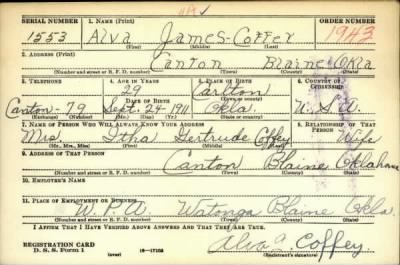 SERIAL NUMBER 1. NAME (Print) ORDER NUMBER
1553 Alva James Coffey 1943
(First) (Middle) (Last)
2. ADDRESS (Print)
Canton Blaine Okla
(Number and street or R. F. D. number) (Town) (County) (State)
3. TELEPHONE 4. AGE IN YEARS 5. PLACE OF BIRTH 6. COUNTRY OF CITIZENSHIP
29 Carlton
DATE OF BIRTH (Town or county)
Canton-79 Sept. 24-1911 Okla. U.S.A.
(Exchange) (Number) (Mo.) (Day) (Yr.) (State or country)
7. NAME OF PERSON WHO WILL ALWAYS KNOW YOUR ADDRESS 8. RELATIONSHIP OF THAT PERSON
Mrs Itha Gertrude Coffey Wife
(Mr., Mrs., Miss) (First) (Middle) (Last)
9. ADDRESS OF THAT PERSON
Canton Blaine Oklahoma
(Number and street or R. F. D. number) (Town) (County) (State)
10. EMPLOYER'S NAME
11. PLACE OF EMPLOYMENT OR BUSINESS
W.P.A. Watonga Blaine Okla.
(Number and street or R. F. D. number) (Town) (County) (State)
I AFFIRM THAT I HAVE VERIFIED ABOVE ANSWERS AND THAT THEY ARE TRUE.
REGISTRATION CARD
D. S. S. Form 1 (over) 16-17105 Alva J. Coffey